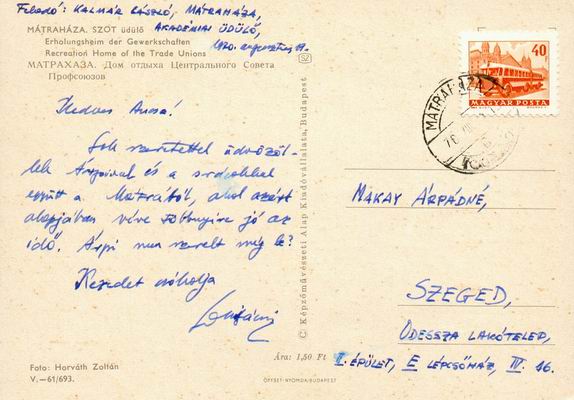 Feladó: KALMÁR LÁSZLÓ, MÁTRAHÁZA,
AKADÉMIAI ÜDÜLŐ,
MÁTRAHÁZA. SZOT üdülő
Erholungsheim der Gewerkschaften
Recreation Home of the Trade Unions
МАТРАХАЗА. Дом отдыха Центрального Совета
Профсоюзов
Kedves Ancsa!
Sok szeretettel üdvözöl-
lek Árpival és a srácokkal
együtt a Mátrából, ahol azért
alapjában véve többnyire jó az
idő. Árpi nem szerelt még le?
Kezedet csókolja
Foto: Horváth Zoltán
V.—61/693.
SZ
C: Képzőművészeti Alap Kiadóvállalata, Budapest
Ára: 1,50 Ft
OFFSET-NYOMDA/BUDAPEST
40
MAGYAR POSTA
MÁTRAHÁZA
MAKAY ÁRPÁDNÉ,
SZEGED,
ODESSZA LAKÓTELEP,
II. ÉPÜLET, E LÉPCSŐHÁZ, IV. 16.